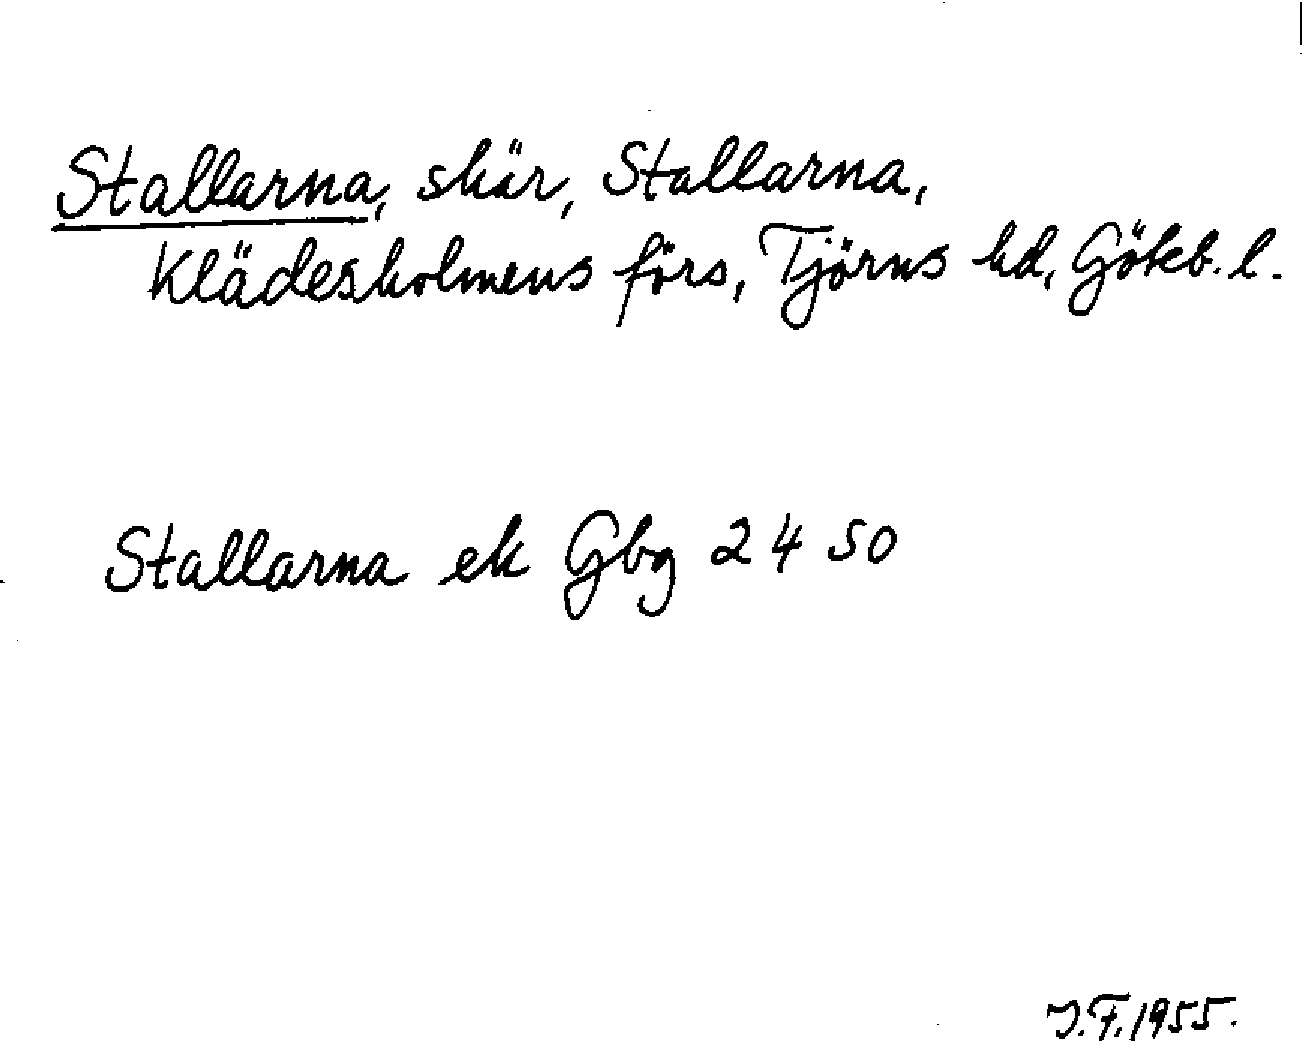 Stallarna, skär, Stallarna,
Klädesholmens förs, Tjörns hd, Göteb. l.
Stallarna ek Gbg 2450
J.F. 1955.